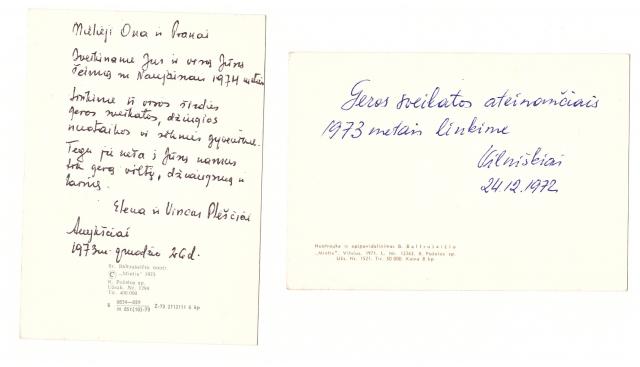 Mielieji Ona ir Pranai
Sveikiname Jus ir visą Jūsų
šeimą su Naujaisiais 1974 metais
Linkime iš visos širdies
geros sveikatos, džiugios
nuotaikos ir sėkmės gyvenime.
Tegu jie neša į Jūsų namus
tik gerą viltį, džiaugsmą ir
laimę.
Elena ir Vincas Plėščiai
Anykščiai
1973 m. gruodžio 26 d.
Br. Baltrušaičio nuotr.
© „Mintis" 1973
K. Poželos sp.
Užsak. Nr. 1294
Tir. 400.000
Geros sveikatos ateinančiais
1973 metais linkime
Vilniškiai
24.12.1972
Nuotrauka ir apipavidalinimas B. Baltrušaičio
„Mintis", Vilnius, 1971. L. Nr. 12363. K. Poželos sp.
Užs. Nr. 1521. Tir. 50 000. Kaina 8 kp